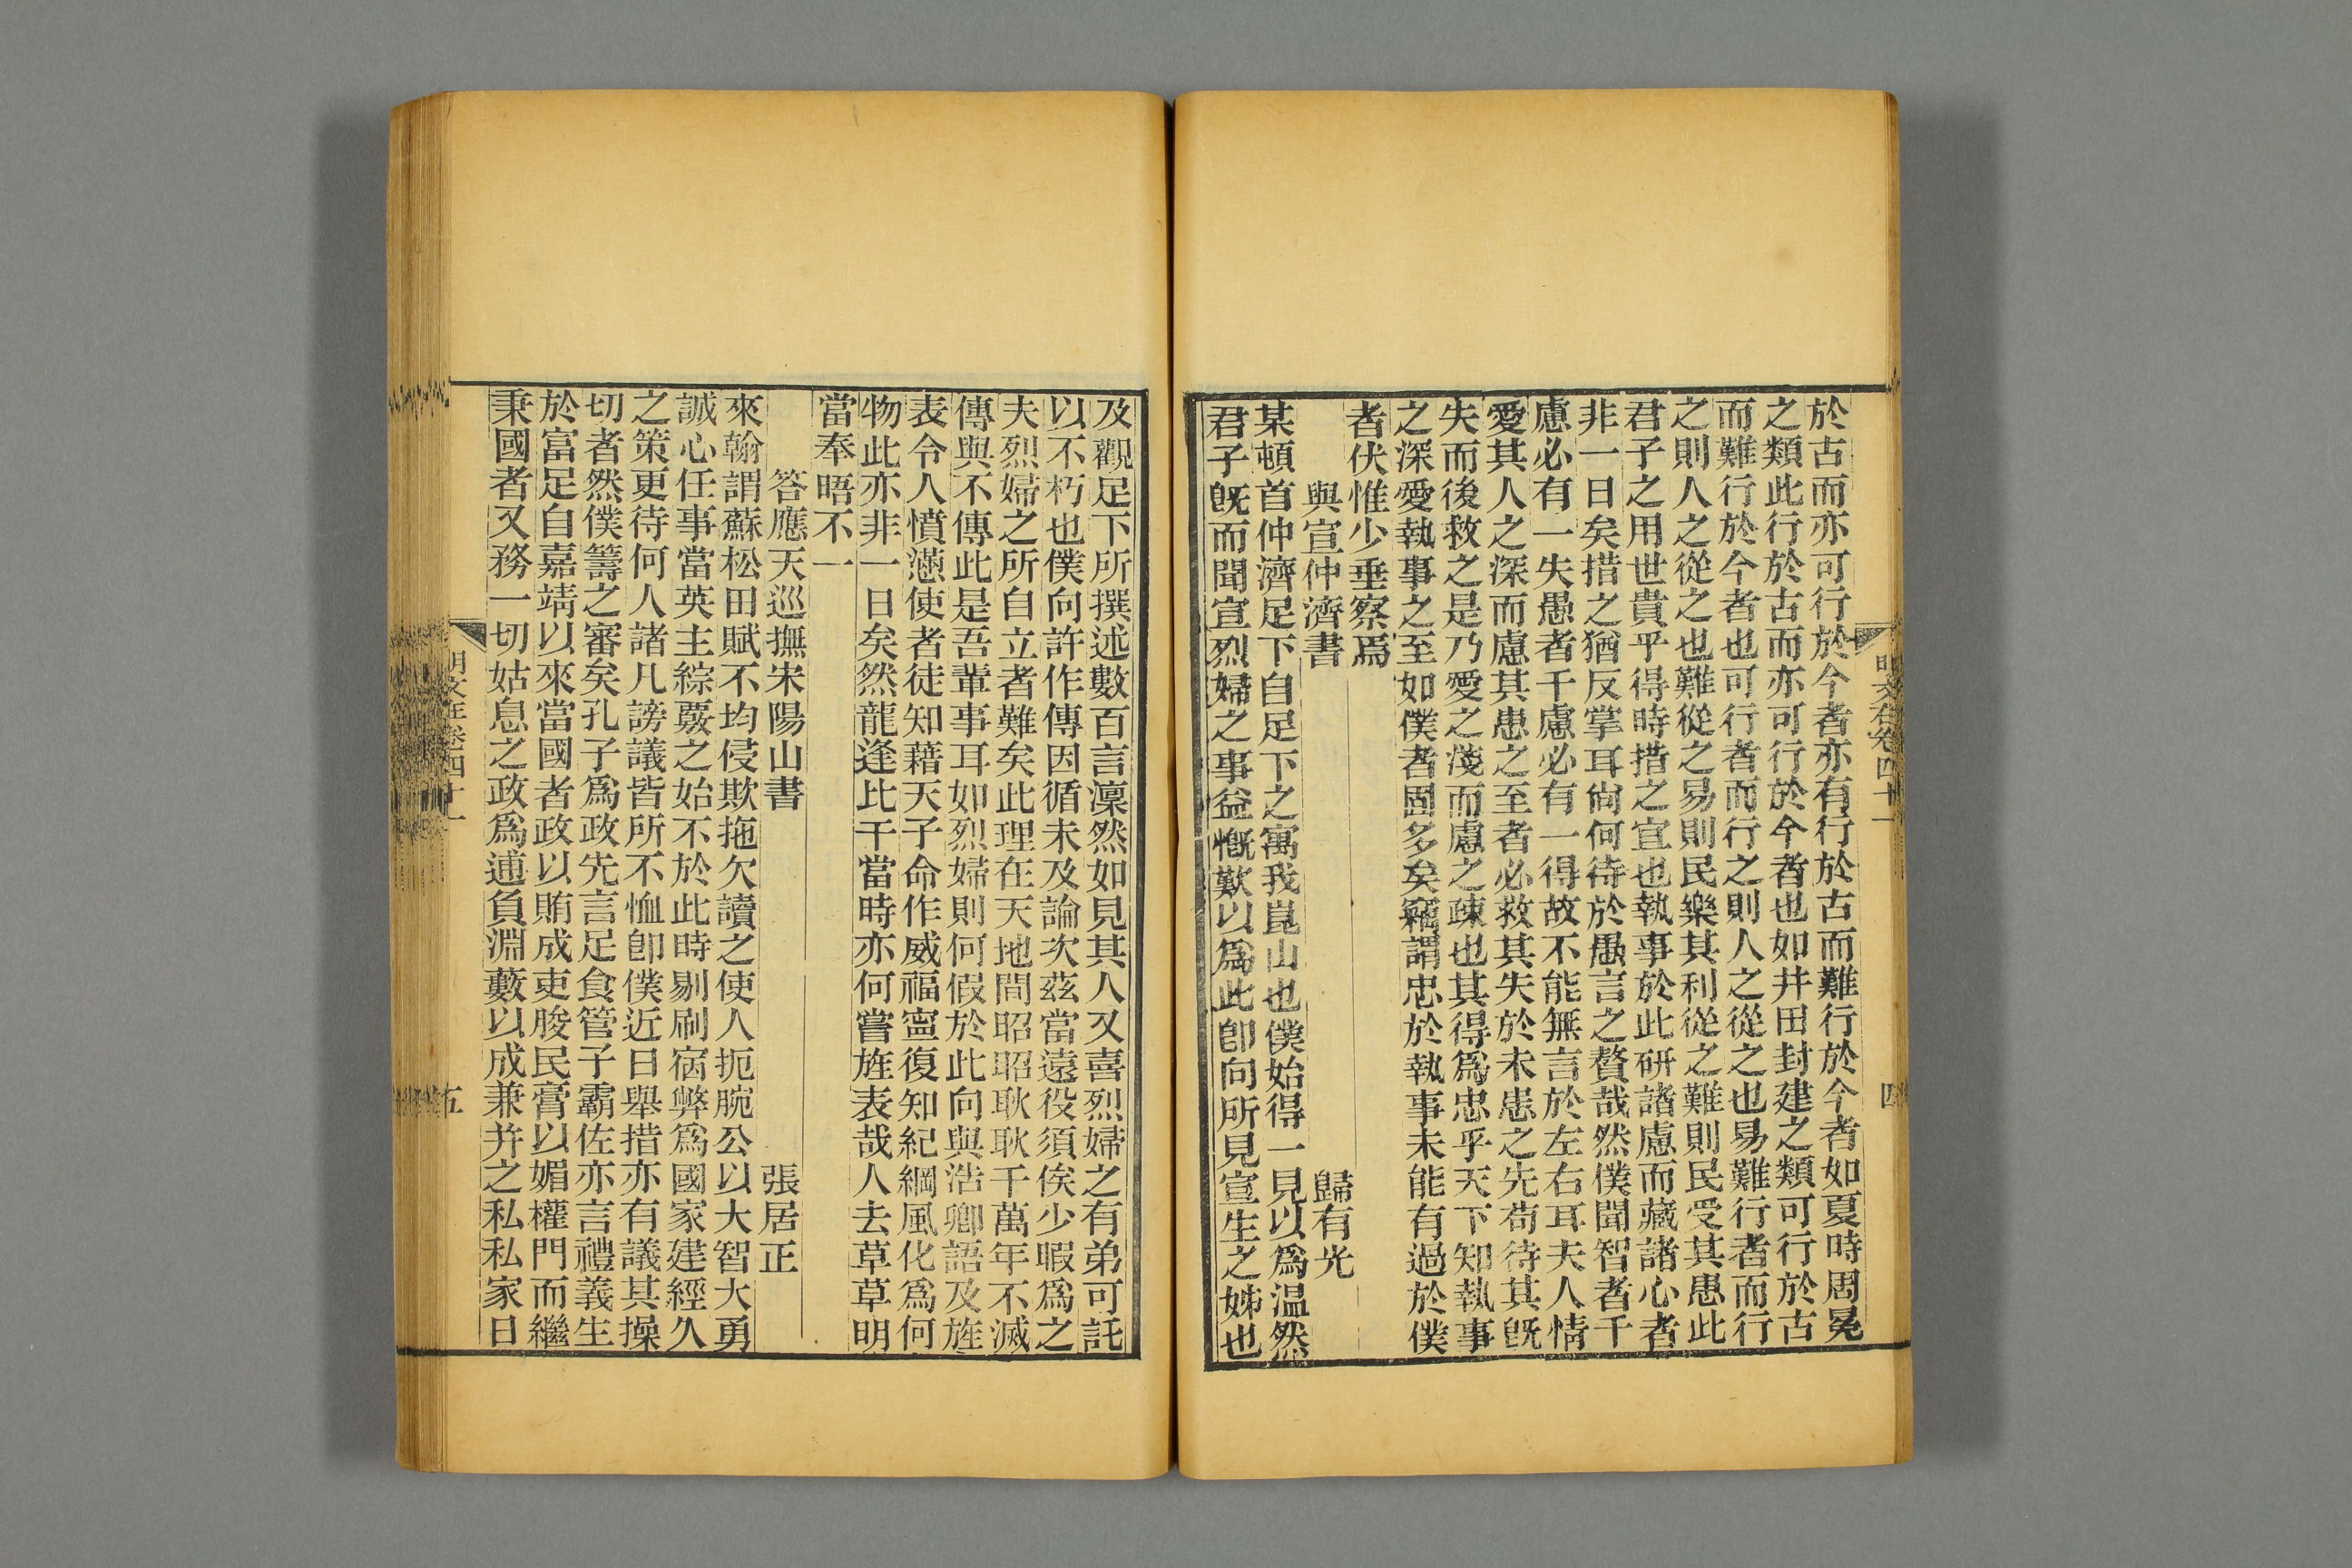 於古而亦可行於今者亦有行於古而難行於今者如夏時周冕
之類此行於古而亦可行於今者也如井田封建之類可行於古
而難行於今者也可行者而行之則人之從之也易難行者而行
之則人之從之也難從之易則民樂其利從之難則民受其患此
君子之用世貴乎得時措之宜也執事於此研諸慮而藏諸心者
非一日矣措之猶反掌耳尙何待於愚言之贅哉然僕聞智者千
慮必有一失愚者千慮必有一得故不能無言於左右耳夫人情
愛其人之深而慮其患之至者必救其失於未患之先苟待其旣
失而後救之是乃愛之淺而慮之疎也其得爲忠乎天下知執事
之深愛執事之至如僕者固多矣竊謂忠於執事未能有過於僕
者伏惟少垂察焉
與宣仲濟書 歸有光
某頓首仲濟足下自足下之寓我崑山也僕始得一見以爲温然
君子旣而聞宣烈婦之事益慨歎以爲此卽向所見宣生之姊也
明文在卷四十一 四
及觀足下所撰述數百言凜然如見其人又喜烈婦之有弟可託
以不朽也僕向許作傳因循未及論次茲當遠役須俟少暇爲之
夫烈婦之所自立者難矣此理在天地間昭昭耿耿千萬年不滅
傳與不傳此是吾輩事耳如烈婦則何假於此向與浩卿語及旌
表令人憤懣使者徒知藉天子命作威福寍復知紀綱風化爲何
物此亦非一日矣然龍逢比干當時亦何嘗旌表哉人去草草明
當奉晤不一
答應天巡撫宋陽山書 張居正
來翰謂蘇松田賦不均侵欺拖欠讀之使人扼腕公以大智大勇
誠心任事當英主綜覈之始不於此時剔刷宿弊爲國家建經久
之策更待何人諸凡謗議皆所不恤卽僕近日舉措亦有議其操
切者然僕籌之審矣孔子爲政先言足食管子霸佐亦言禮義生
於富足自嘉靖以來當國者政以賄成吏朘民膏以媚權門而繼
秉國者又務一切姑息之政爲逋負淵藪以成兼并之私私家日
明文在卷四十一 五